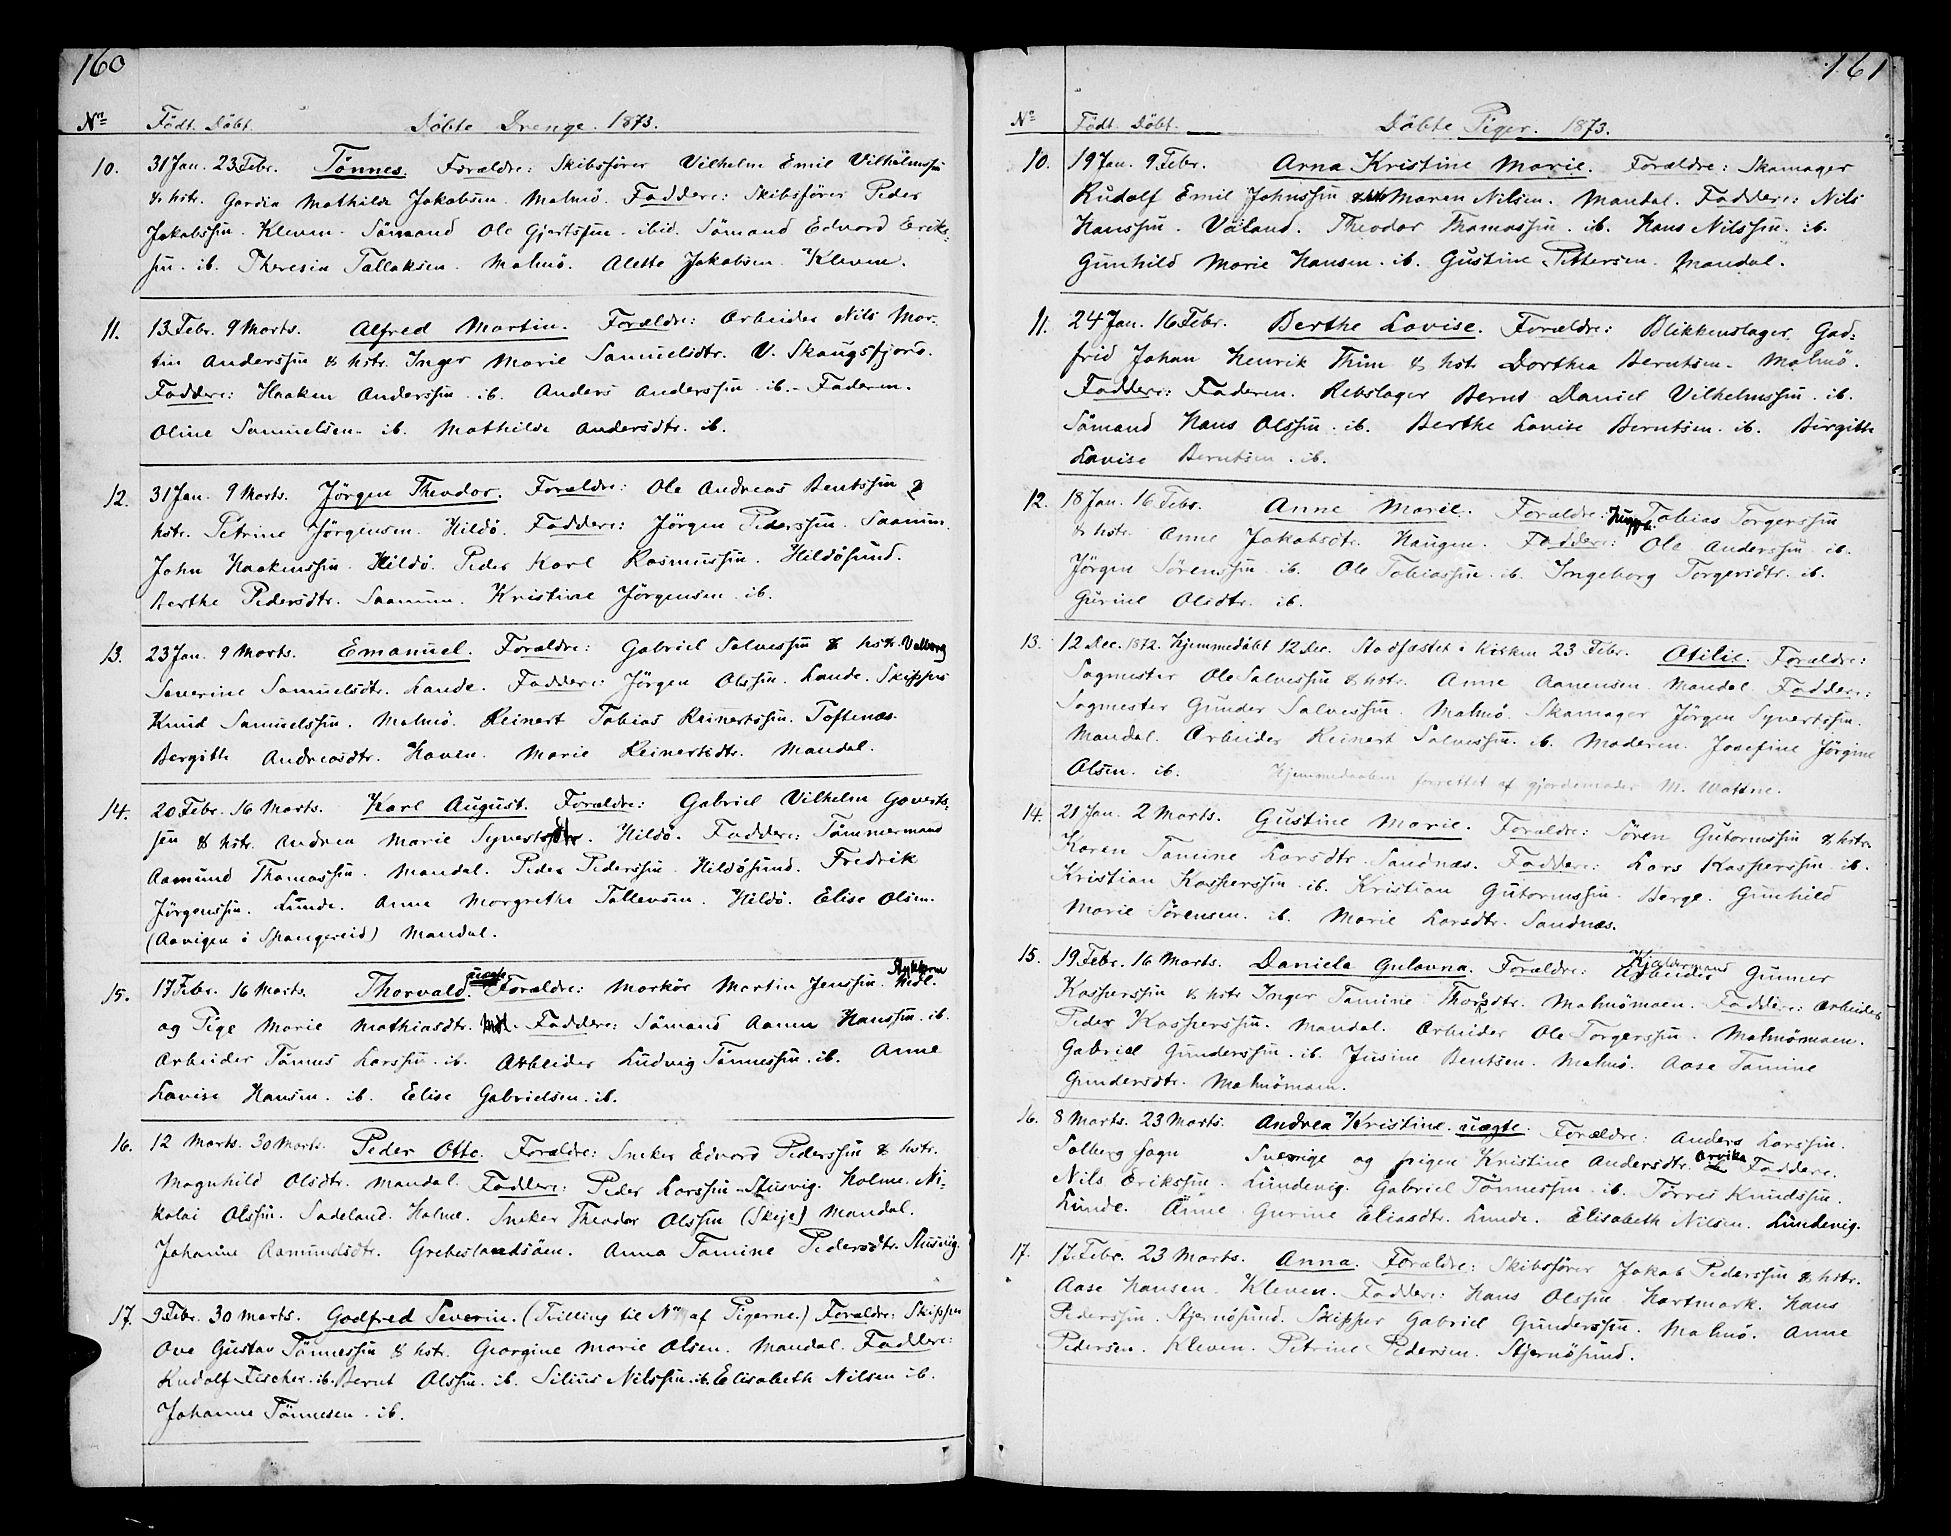 160
Nr. Födt. Döbt. Döbte Drenge. 1873.
10. 31 Jan. 23 Febr. Tönnes. Forældre: Skibsförer Vilhelm Emil Vilhelmssön
& hstr. Gardia Mathilde Jakobsen. Malmö. Faddere: Skibsförer Peder
Jakobssön. Kleven. Sömand Ole Gjertssön. ibid. Sömand Edvard Eriks-
sön. ib. Theresia Tallaksen. Malmö. Alette Jakobsen. Kleven.
11. 13 Febr. 9 Marts. Alfred Martin. Forældre: Arbeider Nils Mar-
tin Anderssön & hstr. Inger Marie Samuelsdtr. V. Skaugsfjord.
Faddere: Haaken Anderssön. ib. Anders Anderssön. ib. Faderen.
Oline Samuelsen. ib. Mathilde Andersdtr. ib.
12. 31 Jan. 9 Marts. Jörgen Theodor. Forældre: Ole Andreas Bentssön &
hstr. Petrine Jörgensen. Hildö. Faddere: Jörgen Pederssön. Saanum.
John Haakenssön. Hildö. Peder Karl Rasmussön. Hildösund.
Berthe Pedersdtr. Saanum. Kristine Jörgensen. ib.
13. 23 Jan. 9 Marts. Emanuel. Forældre: Gabriel Salvessön & hstr. Valborg
Severine Samuelsdtr. Lande. Faddere: Jörgen Olssön. Lande. Skipper
Knud Samuelssön. Malmö. Reinert Tobias Reinertssön. Toftenæs.
Bergitte Andreasdtr. Haven. Marie Reinertsdtr. Mandal.
14. 20 Febr. 16 Marts. Karl August. Forældre: Gabriel Vilhelm Goverts-
sön & hstr. Andrea Marie Syvertsdtr. Hildö. Faddere: Tömmermand
Aamund Thomassön. Mandal. Peder Pederssön. Hildösund. Fredrik
Jörgenssön. Lunde. Anne Margrethe Tallevsen. Hildö. Elise Olsen.
(Aavigen i Spangereid) Mandal.
15. 17 Febr. 16 Marts. Thorvald. uægte Forældre: Markör Martin Jenssön. Mdl.
og Pige Marie Mathiasdtr. Faddere: Sömand Aanen Hanssön. ib.
Arbeider Tönnes Larssön. ib. Arbeider Ludvig Tönnessön. ib. Anne
Lovise Hansen. ib. Eelise Gabrielsen. ib.
16. 12 Marts. 30 Marts. Peder Otto. Forældre: Sneker Edvard Pederssön & hstr.
Magnhild Olsdtr. Mandal. Faddere: Peder Larssön. Stusvig. Holme. Ni-
kolai Olssön. Sadeland. Holme. Sneker Theodor Olssön (Skeje) Mandal.
Johanne Aamundsdtr. Grebeslandsåen. Anna Tomine Pedersdtr. Stusvig.
17. 9 Febr. 30 Marts. Godfred Severin. (Tvilling til Nr. af Pigerne.) Forældre: Skipper
Ove Gustav Tönnessön & hstr. Georgine Marie Olsen. Mandal. Faddere:
Rudolf Fischer. ib. Bernt Olssön. ib. Silius Nilssön. ib. Elisabeth Nilsen ib.
Johanne Tönnesen. ib.
161
Nr. Födt. Döbt. Döbte Piger. 1873.
10. 19 Jan. 9 Febr. Anna Kristine Marie. Forældre: Skomager
Rudolf Emil Johnssön & hstr Maren Nilsen. Mandal. Faddere: Nils
Hanssön. Våland. Theodor Thomassön. ib. Hans Nilssön. ib.
Gunhild Marie Hansen. ib. Gustine Pettersen. Mandal.
11. 24 Jan. 16 Febr. Berthe Lovise. Forældre: Blikkenslager God-
frid Johan Henrik Thim & hstr Dorthea Berntsen. Malmö.
Faddere: Faderen. Rebslager Bernt Daniel Vilhelmssön. ib.
Sömand Hans Olssön. ib. Berthe Lovise Berntsen. ib. Birgitte
Lovise Berntsen. ib.
12. 18 Jan. 16 Febr. Anne Marie. Forældre: Tobias Torgerssön
& hstr. Anne Jakobsdtr. Haugen. Faddere: Ole Anderssön. ib.
Jörgen Sörenssön. ib. Ole Tobiassön. ib. Ingeborg Torgersdtr. ib.
Gurine Olsdtr. ib.
13. 12 Dec. 1872. Hjemmedöbt 12 Dec. Stadfæstet i kirken 23 Febr. Otilie. Forældre:
Sagmester Ole Salvessön & hstr. Anne Aanensen. Mandal. Faddere:
Sagmester Gunder Salvessön. Malmö. Skomager Jörgen Syvertssön.
Mandal. Arbeider Reinert Salvessön. ib. Moderen. Josefine Jörgine
Olsen. ib. Hjemmedaaben forrettet af gjordemoder M. Wattne.
14. 21 Jan. 2 Marts. Gustine Marie. Forældre: Sören Gutormssön & hstr.
Karen Tomine Larsdtr. Sandnæs. Faddere: Lars Kasperssön. ib.
Kristian Kasperssön. ib. Kristian Gutormssön. Berge. Gunhild
Marie Sörensen. ib. Marie Larsdtr. Sandnæs.
15. 19 Febr. 16 Marts. Daniela Gulovna. Forældre: Gunner
Kasperssön & hstr Inger Tomine Thorsdtr. Malmömoen. Faddere: Arbeider
Peder Kasperssön. Mandal. Arbeider Ole Torgerssön. Malmömoen.
Gabriel Gunderssön. ib. Jusine Bentsen. Malmö. Aase Tomine
Gundersdtr. Malmömoen.
16. 8 Marts. 23 Marts. Andrea Kristine. uægte. Forældre: Anders Larssön.
Solberg sogn Sverrige og pigen Kristine Andersdtr. Arvika Faddere.
Nils Erikssön. Lundevig. Gabriel Tönnessön. ib. Törres Knudssön.
Lunde. Anne Gurine Eliasdtr. Lunde. Elisabeth Nilsen. Lundevig.
17. 17 Febr. 23 Marts. Anna. Forældre: Skibsförer Jakob Pederssön & hstr.
Aase Hansen. Kleven. Faddere: Hans Olssön. Hartmark. Hans
Pederssön. Stjernösund. Skipper Gabriel Gunderssön. Malmö. Anne
Pedersen. Kleven. Petrine Pedersen. Stjernösund.